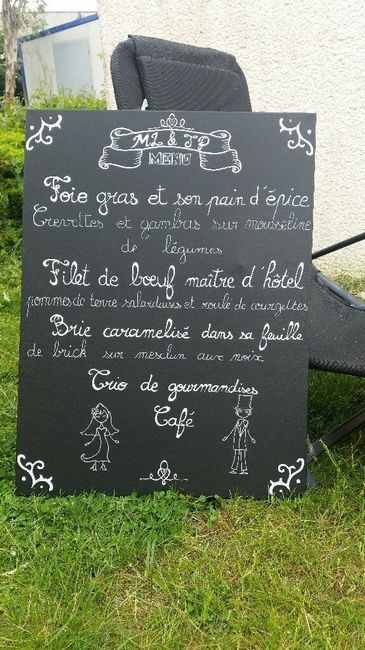 ML & JP
MENU
Foie gras et son pain d'épice
Crevettes et gambas sur mousseline
de légumes
Filet de bœuf maître d'hôtel
pommes de terre salardaises et roulé de courgettes
Brie caramelisé dans sa feuille
de brick sur mesclun aux noix
Trio de gourmandises
Café